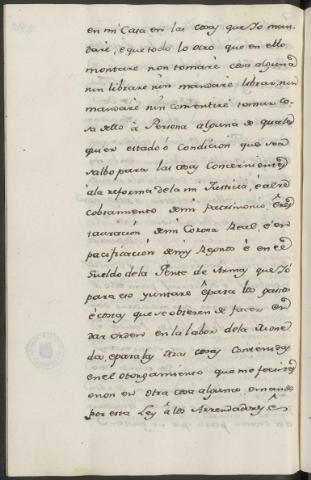 en mi Casa en las cosas que Yo man-
dare, e que todo lo otro que en ello
montare non tomaré cosa alguna
nin librare nin mandaré librar, nin
mandaré nin consentiré tomar co-
sa dello á Persona alguna de qual
quier estado ó Condicion que sea
salbo para las cosas Concernientes
ala reforma dela mi Justicia, é al re
cobramiento de mi Patrimonio é res
tauración de mi Corona Real, é en
pacificacion de mis Regnos é en el
sueldo dela Gente de Armas que Yo
para eso yuntare é para los gastos
é cosas que se obieren de facer en
dar orden en la labor dela mone
da, é para las otras cosas Contenidas
en el otorgamiento que me fecistes
é non en otra cosa alguna é mando
por esta Ley á los Arrendadores é